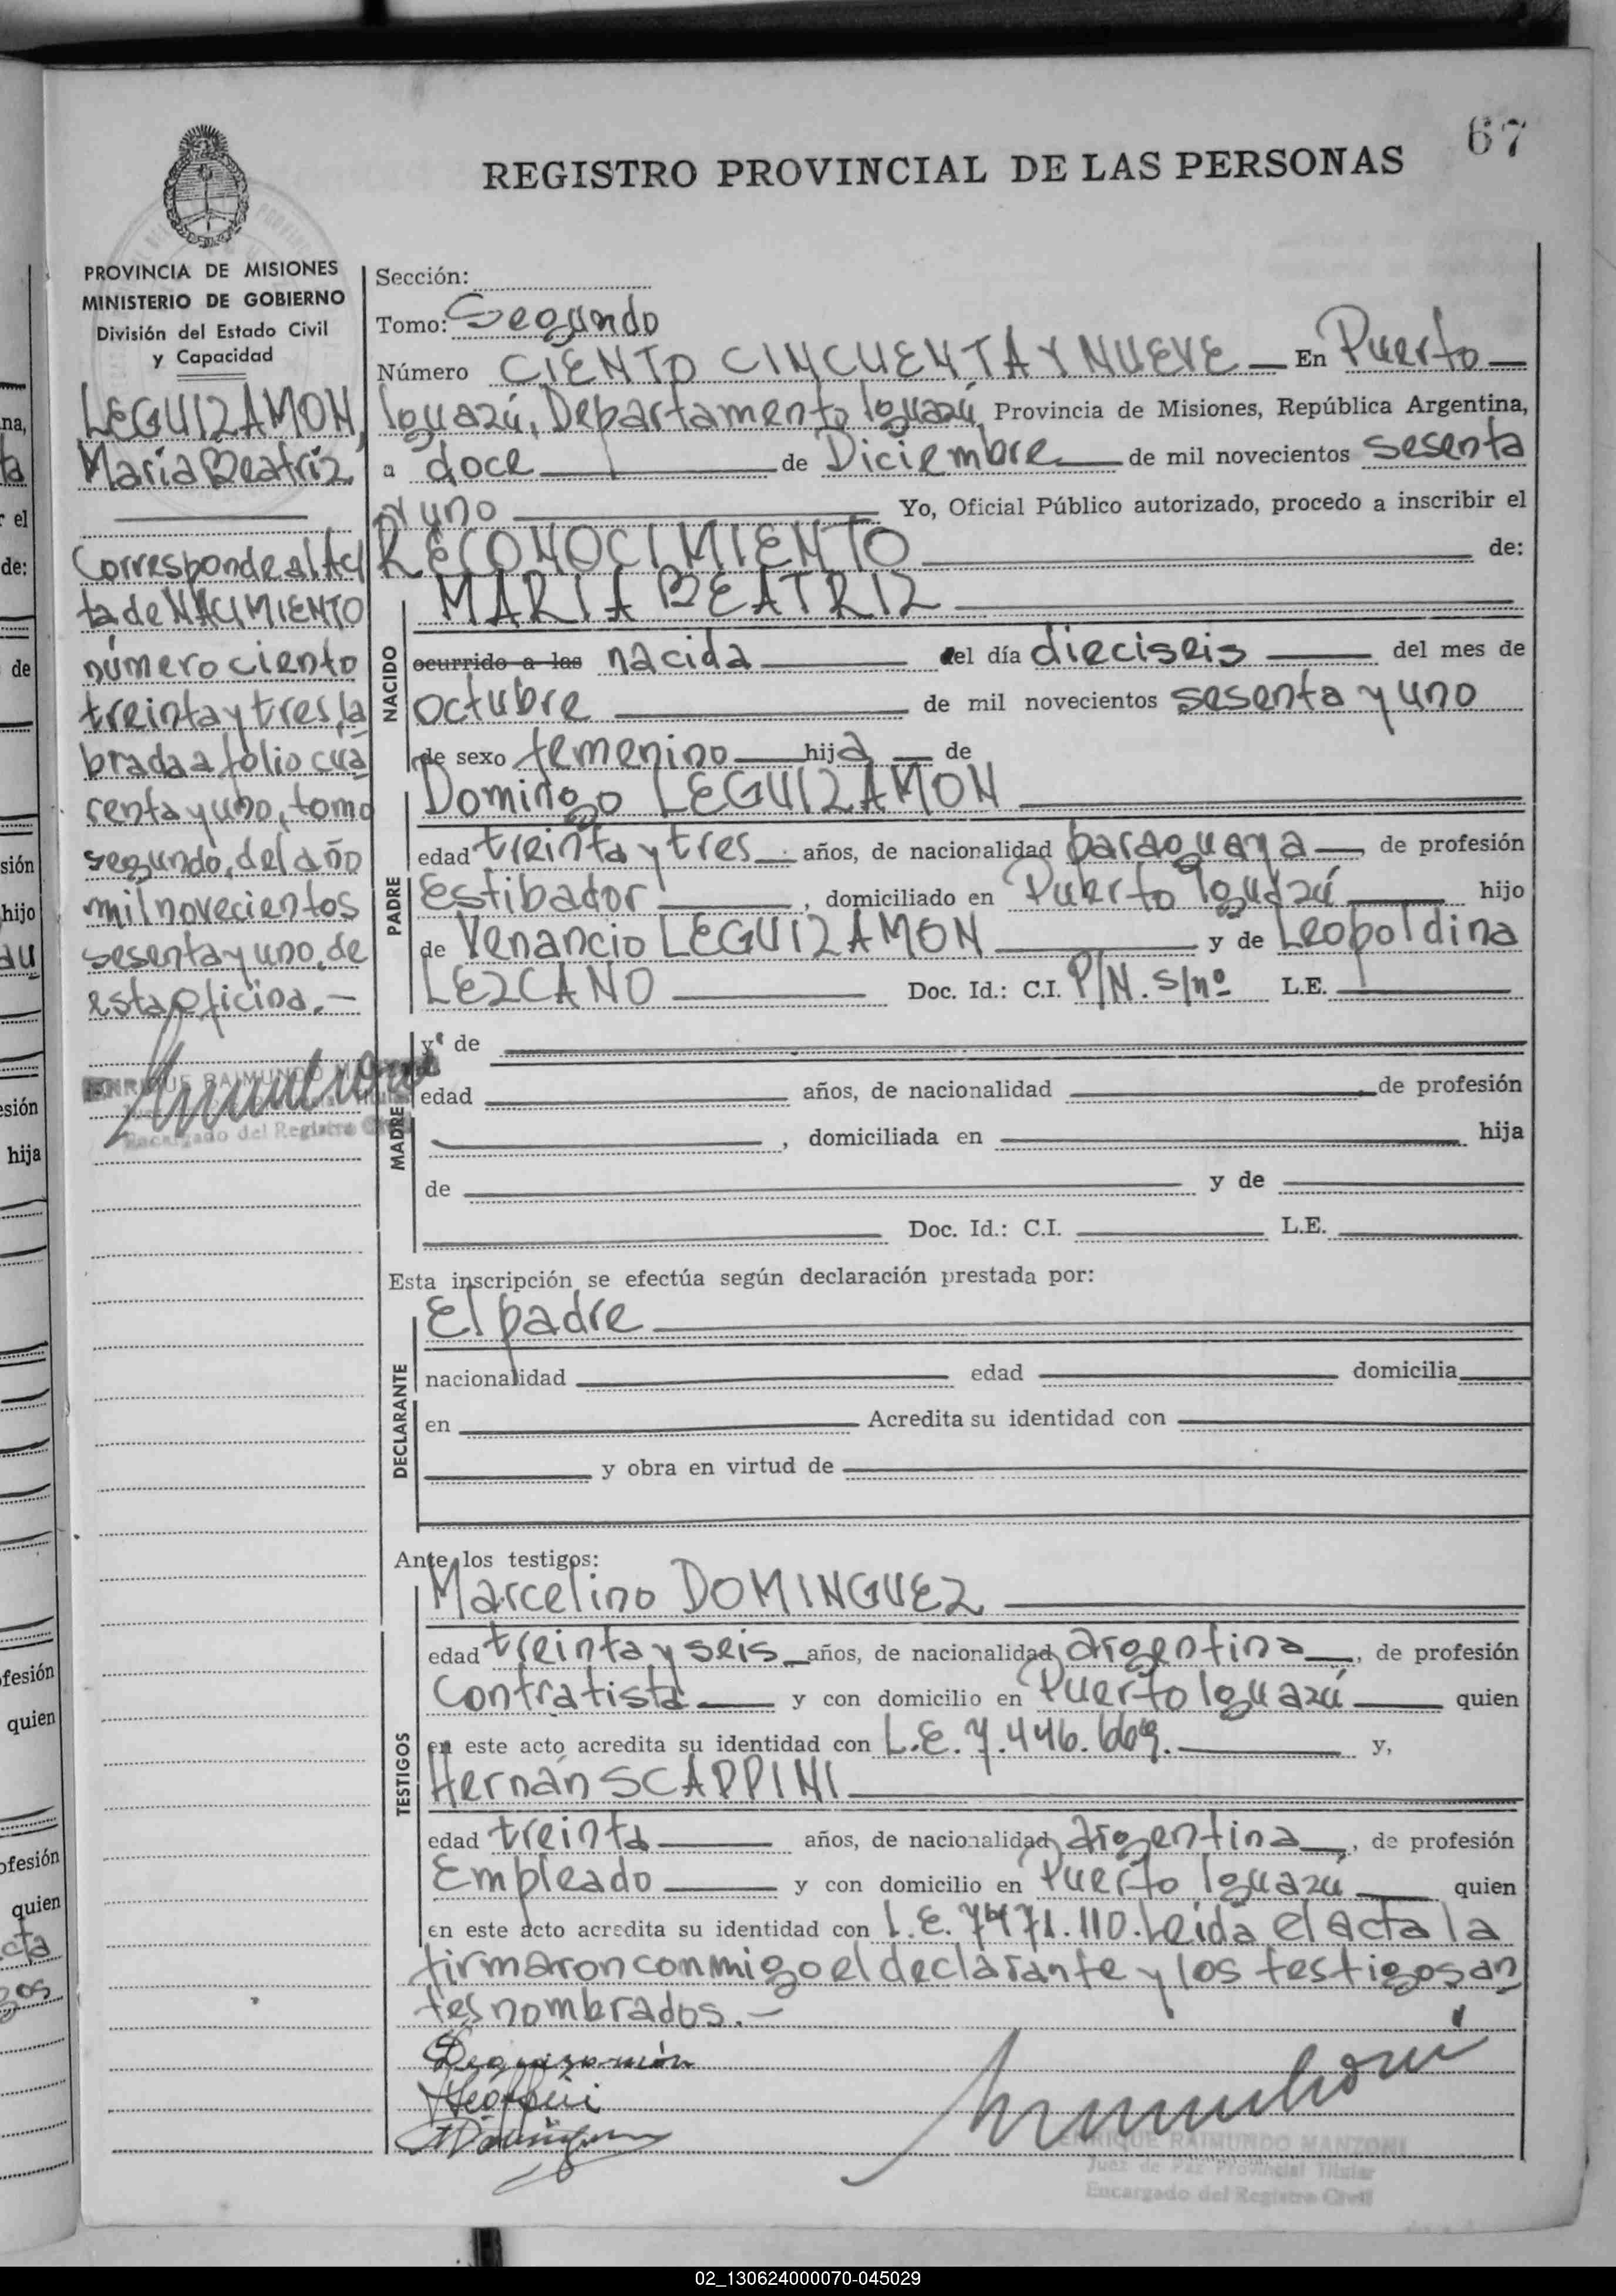 67
REGISTRO PROVINCIAL DE LAS PERSONAS
PROVINCIA DE MISIONES
MINISTERIO DE GOBIERNO
División del Estado Civil
y Capacidad
LEGUIZAMON,
Maria Beatriz
Corresponde al Ac
ta de NACIMIENTO
número ciento
treinta y tres, la
brada a folio cua
renta y uno, tomo
segundo, del año
mil novecientos
sesenta y uno, de
esta Oficina.-
ENRIQUE RAIMUNDO
Encargado del Registro Civil
Sección:
Tomo: Segundo
Número CIENTO CINCUENTA Y NUEVE En Puerto
Iguazú, Departamento Iguazú, Provincia de Misiones, República Argentina,
a doce de Diciembre de mil novecientos sesenta
y uno Yo, Oficial Público autorizado, procedo a inscribir el
RECONOCIMIENTO de:
NACIDO
MARIA BEATRIZ
ocurrido a las nacida del día dieciseis del mes de
octubre de mil novecientos sesenta y uno
de sexo femenino hija de
PADRE
Domingo LEGUIZAMON
edad treinta y tres años, de nacionalidad paraguaya, de profesión
Estibador, domiciliado en Puerto Iguazú hijo
de Venancio LEGUIZAMON y de Leopoldina
LEZCANO Doc. Id.: C.I. P/N. s/nº L.E.
MADRE
y de
edad años, de nacionalidad de profesión
, domiciliada en hija
de y de
Doc. Id.: C.I. L.E.
Esta inscripción se efectúa según declaración prestada por:
DECLARANTE
El padre
nacionalidad edad domicilia
en Acredita su identidad con
y obra en virtud de
Ante los testigos:
TESTIGOS
Marcelino DOMINGUEZ
edad treinta y seis años, de nacionalidad argentina, de profesión
Contratista y con domicilio en Puerto Iguazú quien
en este acto acredita su identidad con L.E. 7.446.669. y,
Hernán SCAPPINI
edad treinta años, de nacionalidad argentina, de profesión
Empleado y con domicilio en Puerto Iguazú quien
en este acto acredita su identidad con L.E. 7471.110. Leida el acta la
firmaron conmigo el declarante y los testigos an
tes nombrados.-
Leguizamón
ENRIQUE RAIMUNDO MANZONI
Juez de Paz Provincial Titular
Encargado del Registro Civil
02_130624000070-045029